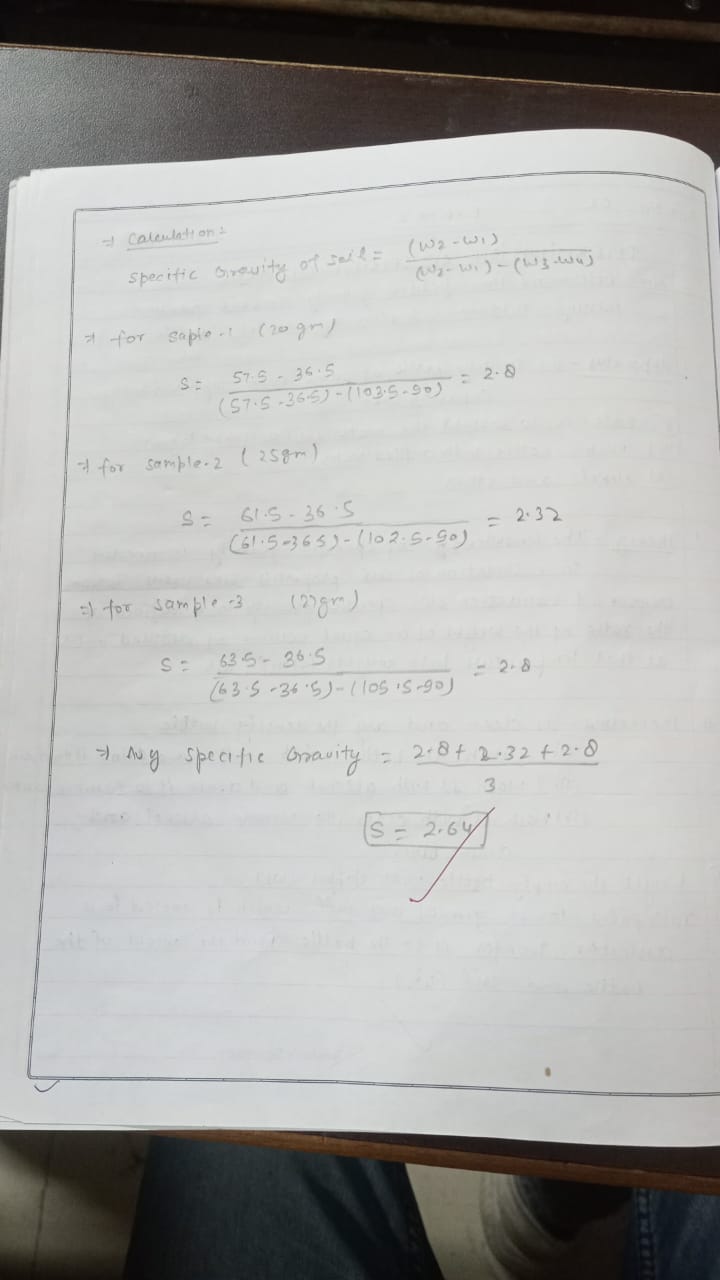 ⇒ Calculation:
Specific Gravity of soil = (W2-W1)
(W2-W1)-(W3-W4)
⇒ for saple-1 (20 gm)
S = 57.5 - 36.5
(57.5-36.5)-(103.5-90) = 2.8
⇒ for sample-2 (25gm)
S = 61.5 - 36.5
(61.5-36.5)-(102.5-90) = 2.32
⇒ for sample-3 (27gm)
S = 63.5 - 36.5
(63.5-36.5)-(105.5-90) = 2.8
⇒ Avg specific Gravity = 2.8 + 2.32 + 2.8
3
S = 2.64